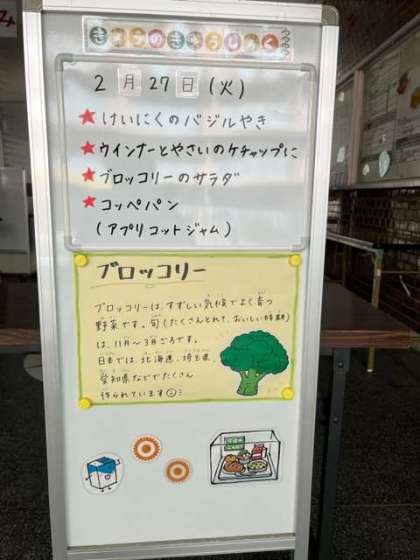 きょうのきゅうしょく
2月27日(火)
★けいにくのバジルやき
★ウインナーとやさいのケチャップに
★ブロッコリーのサラダ
★コッペパン
(アプリコットジャム)
ブロッコリー
ブロッコリーは、すずしい気候でよく育つ
野菜です。旬(たくさんとれて、おいしい時期)
は、11月〜3月ごろです。
日本では、北海道、埼玉県、
愛知県などでたくさん
作られています